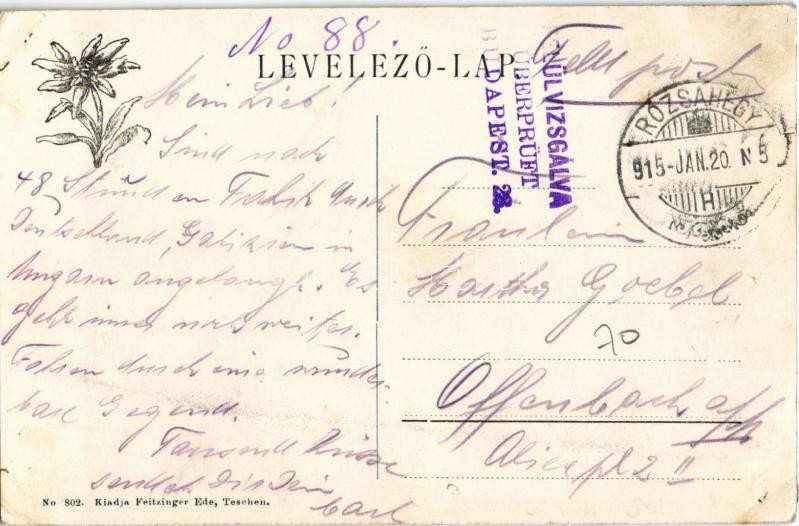 No 88.
LEVELEZŐ-LAP
Feldpost
FELÜLVIZSGÁLVA
ÜBERPRÜFT
BUDAPEST. 2
RÓZSAHEGY
915-JAN.20. N 5
H
Mein Lieb!
Sind nach
48 Stunden Fahrt durch
Deutschland, Galizien in
Ungarn angelangt. Es
geht immer noch weiter.
Fahren durch eine wunder-
bare Gegend.
Tausend Küsse
sendet Dir Dein
Karl
Fräulein
Goebel
70
Offenbach a/M
Alicepl 2 II
No 802. Kiadja Feitzinger Ede, Teschen.